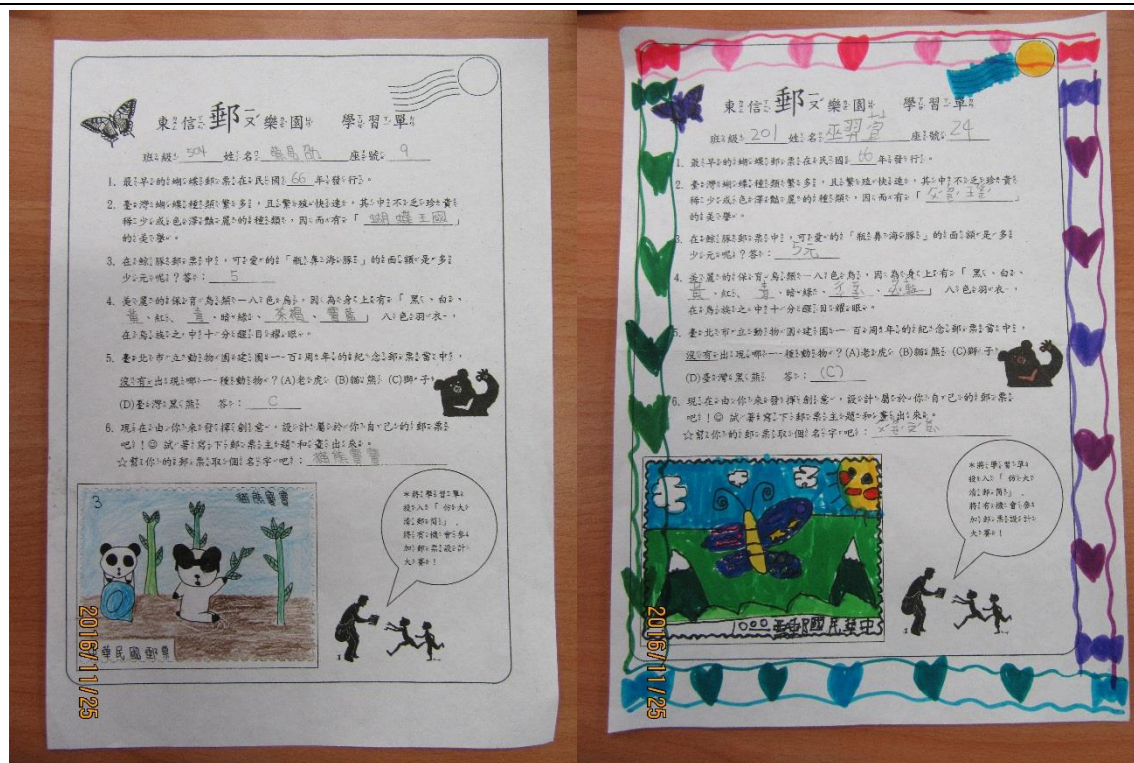 東信郵樂園 學習單
班級 504 姓名 座號 9
1. 最早的蝴蝶郵票在民國 66 年發行。
2. 臺灣蝴蝶種類繁多，且繁殖快速，其中不乏珍貴
稀少或色澤豔麗的種類，因而有「蝴蝶王國」
的美譽。
3. 在鯨豚郵票中，可愛的「瓶鼻海豚」的面額是多
少元呢？答： 5
4. 美麗的保育鳥類－八色鳥，因為身上有「黑、白、
黃、紅、青、暗綠、茶褐、寶藍」八色羽衣，
在鳥族之中十分醒目耀眼。
5. 臺北市立動物園建園一百周年的紀念郵票當中，
沒有出現哪一種動物？(A)老虎 (B)貓熊 (C)獅子
(D)臺灣黑熊 答： C
6. 現在由你來發揮創意，設計屬於你自己的郵票
吧！☺ 試著寫下郵票主題和畫出來。
☆幫你的郵票取個名字吧：貓熊寶寶
3 貓熊寶寶
華民國郵票
＊將學習單
投入「仿大
清郵筒」，
將有機會參
加郵票設計
大賽！
2016/11/25
東信郵樂園 學習單
班級 201 姓名 巫羿萱 座號 24
1. 最早的蝴蝶郵票在民國 66 年發行。
2. 臺灣蝴蝶種類繁多，且繁殖快速，其中不乏珍貴
稀少或色澤豔麗的種類，因而有「
的美譽。
3. 在鯨豚郵票中，可愛的「瓶鼻海豚」的面額是多
少元呢？答： 5元
4. 美麗的保育鳥類－八色鳥，因為身上有「黑、白、
黃、紅、青、暗綠、 」八色羽衣，
在鳥族之中十分醒目耀眼。
5. 臺北市立動物園建園一百周年的紀念郵票當中，
沒有出現哪一種動物？(A)老虎 (B)貓熊 (C)獅子
(D)臺灣黑熊 答： (C)
6. 現在由你來發揮創意，設計屬於你自己的郵票
吧！☺ 試著寫下郵票主題和畫出來。
☆幫你的郵票取個名字吧：
＊將學習單
投入「仿大
清郵筒」，
將有機會參
加郵票設計
大賽！
2016/11/25